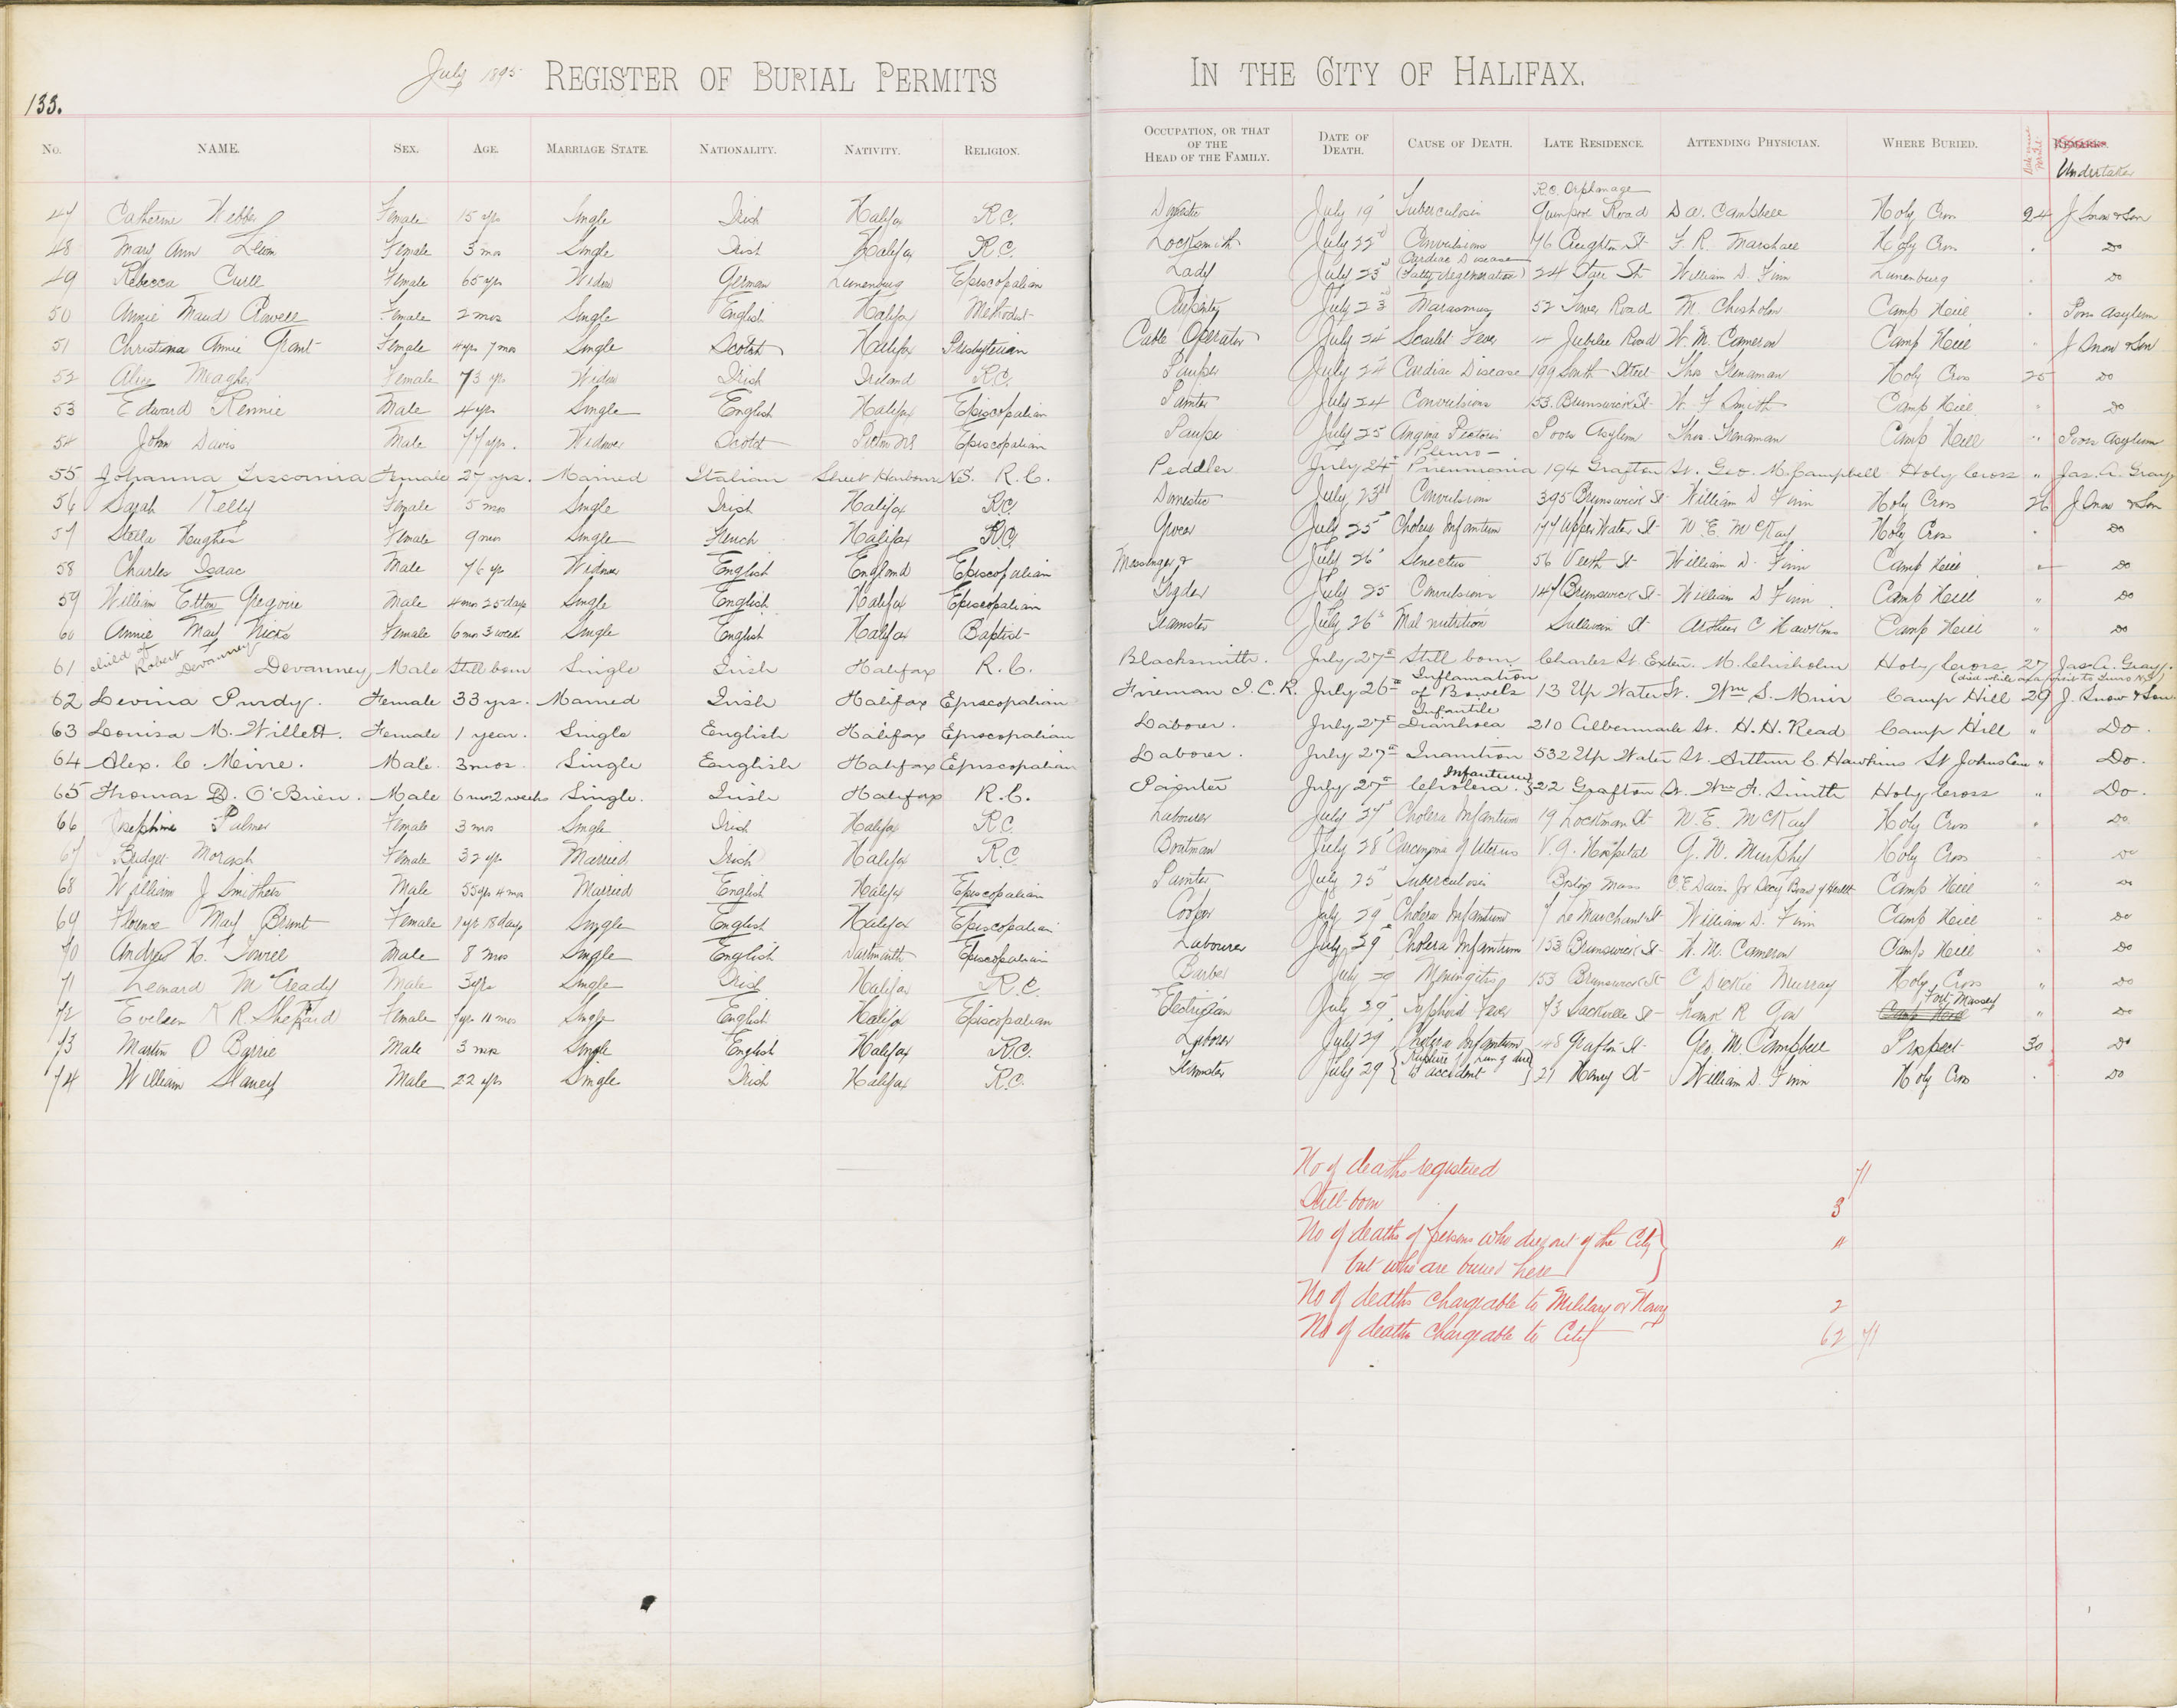 July 1895 REGISTER OF BURIAL PERMITS IN THE CITY OF HALIFAX.
133.
No. NAME. SEX. AGE. MARRIAGE STATE. NATIONALITY. NATIVITY. RELIGION. OCCUPATION, OR THAT OF THE HEAD OF THE FAMILY. DATE OF DEATH. CAUSE OF DEATH. LATE RESIDENCE. ATTENDING PHYSICIAN. WHERE BURIED. REMARKS. Undertaker
47 Catherine Webber Female 15 yrs Single Irish Halifax R.C. Domestic July 19 Tuberculosis R.C. Orphanage Quinpool Road D.A. Campbell Holy Cross 24 J Snow & Son
48 Mary Ann Female 3 mos Single Irish Halifax R.C. Locksmith July 22d Convulsions 76 Creighton St F. R. Marshall Holy Cross Do
49 Rebecca Female 65 yrs Widow German Lunenburg Episcopalian Lady July 23d Cardiac Disease (Fatty degeneration) 24 St William D. Finn Lunenburg Do
50 Annie Maud Female 2 mos Single English Halifax Methodist July 23d Marasmus 52 Tower Road M. Chisholm Camp Hill Poors Asylum
51 Christina Annie Grant Female 4 yrs 7 mos Single Scotch Halifax Presbyterian Cable Operator July 24 Scarlet Fever Jubilee Road W. M. Cameron Camp Hill J Snow & Son
52 Alice Meagher Female 73 yrs Widow Irish Ireland R.C. Pauper July 24 Cardiac Disease 199 South Street Thos Trenaman Holy Cross 25 Do
53 Edward Rennie Male 4 yrs Single English Halifax Episcopalian Painter July 24 Convulsions 153 Brunswick St W. F Smith Camp Hill Do
54 John Davis Male 77 yrs. Widower Scotch Pictou NS Episcopalian Pauper July 25 Angina Pectoris Poors Asylum Thos. Trenaman Camp Hill " Poors Asylum
55 Johanna Female 27 yrs. Married Italian Sheet Harbour N.S. R.C. Peddler July 24th Pleuro-Pneumonia 194 Grafton St. Geo. M. Campbell Holy Cross " Jas. A. Gray
56 Sarah Kelly Female 5 mos Single Irish Halifax R.C. Domestic July 23d Convulsions 395 Brunswick St William D Finn Holy Cross 26 J Snow & Son
57 Stella Hughes Female 9 mos Single French Halifax R.C. Grocer July 25 Cholera Infantum 177 Upper Water St W. E. McKay Holy Cross Do
58 Charles Isaac Male 76 yrs Widower English England Episcopalian Messenger July 26 Senectus 56 Veith St William D. Finn Camp Hill Do
59 William Gregoire Male 4 mos 25 days Single English Halifax Episcopalian July 25 Convulsions 147 Brunswick St William D Finn Camp Hill " Do
60 Annie May Hicks Female 6 mos 3 weeks Single English Halifax Baptist Teamster July 26 Mal nutrition Sullivan St Arthur C Hawkins Camp Hill " Do
61 child of Robert Devanney Devanney Male Still born Single Irish Halifax R.C. Blacksmith. July 27th Still born Charles St. Exten. M. Chisholm Holy Cross 27 Jas. A. Gray.
62 Levina Purdy. Female 33 yrs. Married Irish Halifax Episcopalian Fireman I.C.R. July 26th Inflamation of Bowels 13 Up Water St. Wm S. Muir (died while on a visit to Truro N.S.) Camp Hill 29 J. Snow & Son
63 Louisa M. Willett. Female 1 year. Single English Halifax Episcopalian Laborer. July 27th Infantile Diarrhoea 210 Albermarle St. H. H. Read Camp Hill " Do.
64 Alex. C Mine. Male. 3 mos. Single English Halifax Episcopalian Laborer. July 27th Inanition 532 Up Water St. Arthur C. Hawkins St Johns Cem " Do.
65 Thomas D. O'Brien. Male 6 mos 2 weeks Single. Irish Halifax R.C. Painter July 27th Cholera Infantum 22 Grafton St. Wm F. Smith Holy Cross " Do.
66 Josephine Palmer Female 3 mos Single Irish Halifax R.C. Labourer July 27 Cholera Infantum 19 Lockman St W. E. McKay Holy Cross " Do
67 Bridget Morash Female 32 yrs Married Irish Halifax R.C. Boatman July 28 Carcinoma of Uterus V. G. Hospital G. W. Murphy Holy Cross Do
68 William J Smithers Male 55 yrs 4 mos Married English Halifax Episcopalian Painter July 25 Tuberculosis Boston Mass C. E Davis Jr Secy Board of Health Camp Hill " Do
69 Florence May Brunt Female 1 yr 18 days Single English Halifax Episcopalian Cooper July 29 Cholera Infantum 7 Le Marchant St William D. Finn Camp Hill Do
70 Andrew H. Male 8 mos Single English Dartmouth Episcopalian Labourer July 29 Cholera Infantum 153 Brunswick St W. M. Cameron Camp Hill Do
71 Lenard McCready Male 3 yrs Single Irish Halifax R.C. Barber July 29 Meningitis 153 Brunswick St C Dickie Murray Holy Cross " Do
72 Evelean K R. Sheppard Female 7 yrs 11 mos Single English Halifax Episcopalian Electrician July 29 Typhoid Fever 73 Sackville St Frank R Gow Camp Hill Fort Massey " Do
73 Martin O Barrie Male 3 mos Single English Halifax R.C. Laborer July 29 Cholera Infantum 148 Grafton St Geo. M. Campbell Prospect 30 Do
74 William Slaney Male 22 yrs Single Irish Halifax R.C. Teamster July 29 Rupture of Lung due to accident 21 Henry St William D. Finn Holy Cross Do
No of deaths registered 71
Still-born 3
No of deaths of persons who died out of the City
but who are buried here 4
No of deaths chargeable to Military or Navy 2
No of deaths chargeable to City 62 71